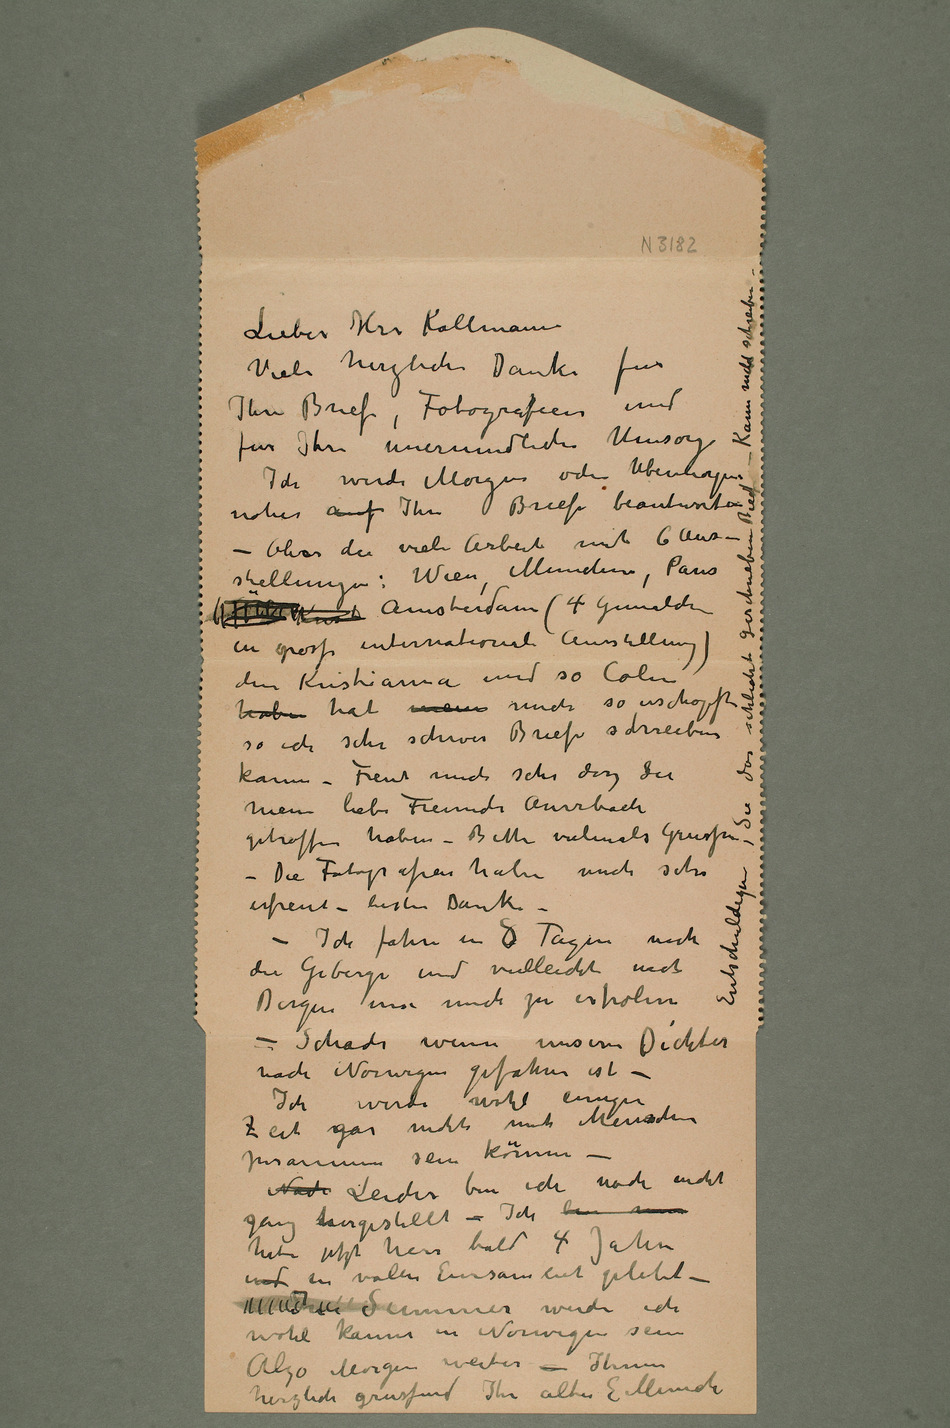 N 3182
Lieber Herr Kollmann
Viele herzliche Danke fur
Ihre Briefe, Fotografieen und
fur Ihre unermudliche Umsorge
Ich werde Morgen oder Ubermorgen
noher auf Ihre Briefe beantworten
– Aber die viele Arbeit mit 6 Aus–
stellungen: Wien, Munchen, Paris
Kunst Amsterdam (4 Gemalden
in grosse internationale Ausstellung)
dem Kristiania und so Coln
haben hat mein mich so erschöpft
so ich sehr schwer Briefe schreiben
kann – Freut mich sehr das Sie
mein liebe Freunde Auerbach
getroffen haben – Bitte vielmals Grüssen –
– Die Fotografien haben mich sehr
erfreut – besten Danke –
– Ich fahre in 8 Tagen nach
die Gebirge und vielleicht nach
Bergen um mich zu erholen
– Schade wenn unsere Dichter
nach Norwegen gefahren ist –
Ich werde wohl einige
Zeit gar nicht mit Menschen
zusammen sein können –
Nach Leider bin ich noch nicht
ganz hergestellt – Ich bin nun
habe jetzt hier bald 4 Jahre
und in vollen Einsamkeit gelebt –
Summer werde ich
wohl kaum in Norwegen sein
Also Morgen weiter – Ihnen
herzlich grussend Ihr alter E Munch
Entschuldigen Sie das schlecht geschrieben Brief – Kann nicht schreiben –